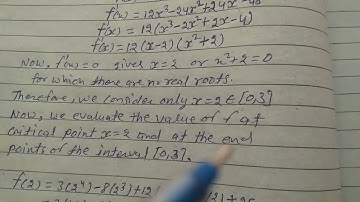 f'(x) = 12x³-24x²+24x-48
f'(x) = 12(x³-2x²+2x-4)
f'(x) = 12(x-2)(x²+2)
Now, f'(x)=0 gives x=2 or x²+2=0
for which there are no real roots.
Therefore, we consider only x=2∈[0,3]
Now, we evaluate the value of f at
critical point x=2 and at the end
points of the interval [0,3].
f(2) = 3(2⁴)-8(2³)+12